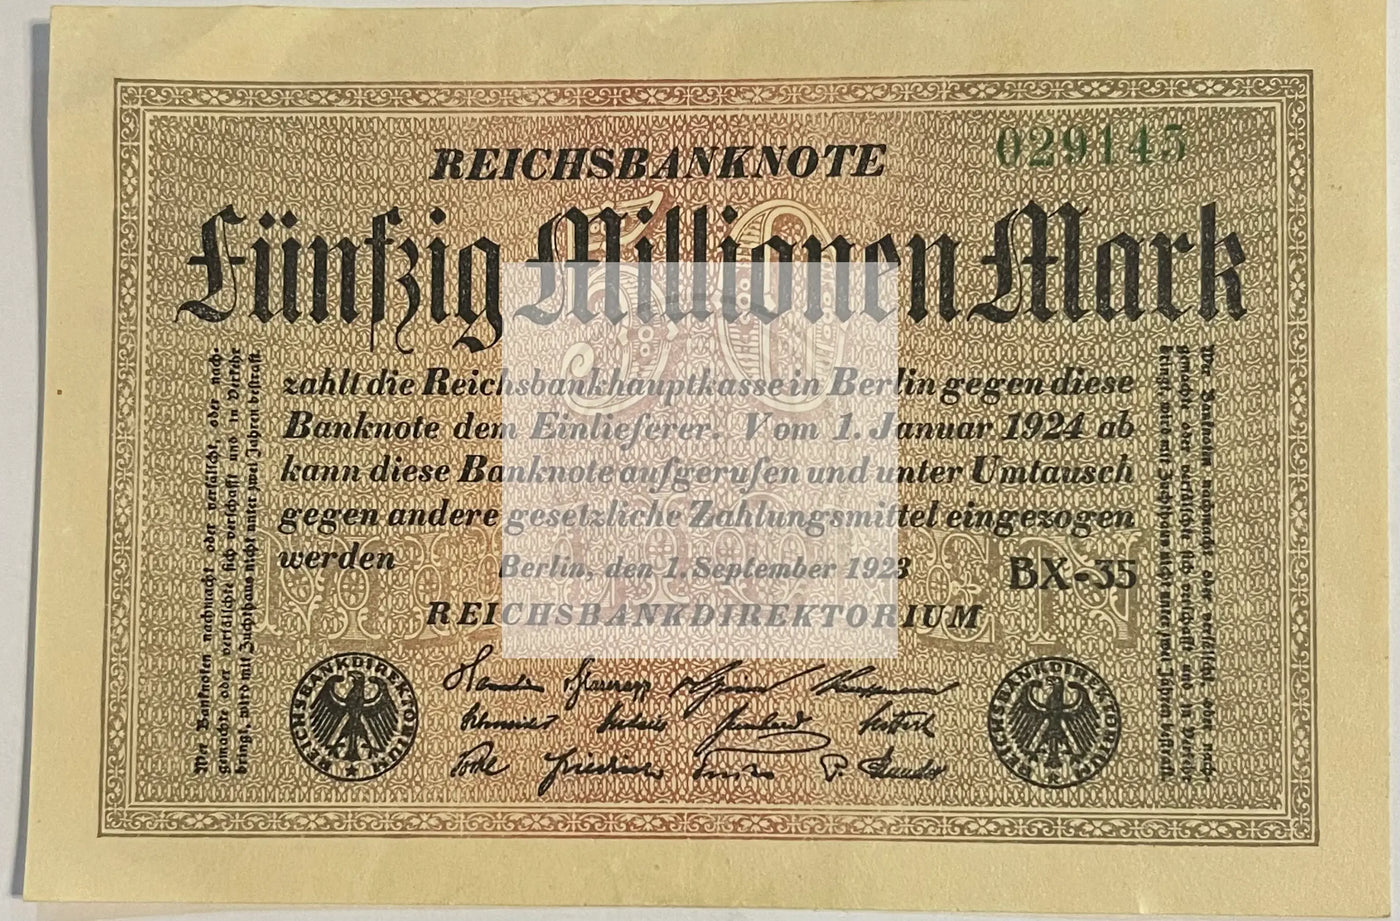 029145
REICHSBANKNOTE
50
Fünfzig Millionen Mark
zahlt die Reichsbankhauptkasse in Berlin gegen diese
Banknote dem Einlieferer. Vom 1. Januar 1924 ab
kann diese Banknote aufgerufen und unter Umtausch
gegen andere gesetzliche Zahlungsmittel eingezogen
werden
Berlin, den 1. September 1923
BX-35
REICHSBANKDIREKTORIUM
MILLIONEN
Wer Banknoten nachmacht oder verfälscht, oder nach-
gemachte oder verfälschte sich verschafft und in Verkehr
bringt, wird mit Zuchthaus nicht unter zwei Jahren bestraft
Wer Banknoten nachmacht oder verfälscht, oder nach-
gemachte oder verfälschte sich verschafft und in Verkehr
bringt, wird mit Zuchthaus nicht unter zwei Jahren bestraft
REICHSBANKDIREKTORIUM
REICHSBANKDIREKTORIUM